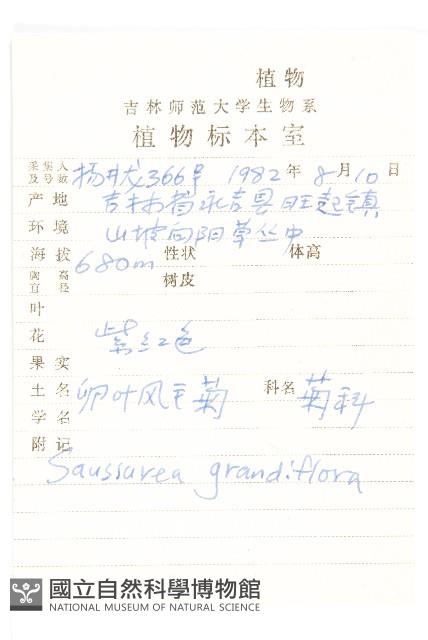 植物
吉林师范大学生物系
植物标本室
采集人及号数 杨井龙366号 1982年8月10日
产地 吉林省永吉县旺起镇
环境 山坡向阳草丛中
海拔 680m 性状 体高
胸高直径 树皮
叶
花 紫红色
果实
土名 卵叶风毛菊 科名 菊科
学名
附记
Saussurea grandiflora
國立自然科學博物館
NATIONAL MUSEUM OF NATURAL SCIENCE